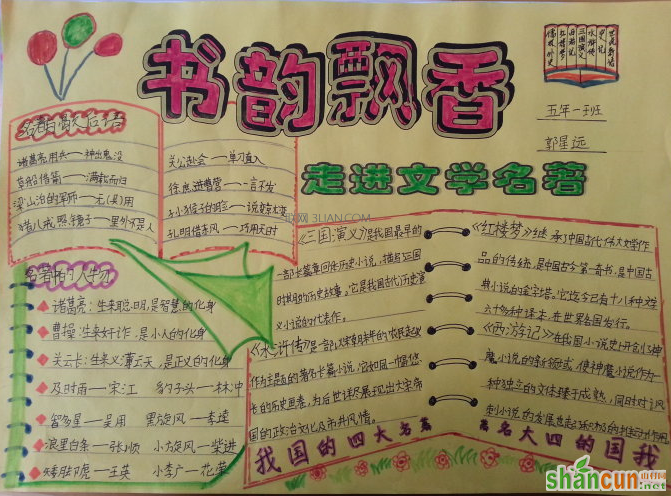 书韵飘香
走进文学名著
五年一班
郭星远
世说新语
史记
水浒传
三国演义
西游记
红楼梦
儒林外史
名著中的歇后语
诸葛亮用兵——神出鬼没
草船借箭——满载而归
梁山泊的军师——无(吴)用
猪八戒照镜子——里外不是人
关公赴会——单刀直入
徐庶进曹营——一言不发
孙猴子的脸——说变就变
孔明借东风——巧用天时
名著中的人物
诸葛亮:生来聪明,是智慧的化身
曹操:生来奸诈,是小人的化身
关云长:生来义薄云天,是正义的化身
及时雨——宋江 豹子头——林冲
智多星——吴用 黑旋风——李逵
浪里白条——张顺 小旋风——柴进
矮脚虎——王英 小李广——花荣
《三国演义》是我国最早的
一部长篇章回体历史小说,描写三国
时期的历史故事。它是我国古代历史演
义小说的代表作。
《水浒传》是一部以宋
作为主题的著名长篇小说,它如同一幅悠
长的历史画卷,为后世详尽展现出大宋帝
国的政治文化及市井风情。
《红楼梦》继承了中国古代伟大文学作
品的传统,是中国古今第一奇书,是中国古
典小说的金字塔。它迄今已有十八种文
六十多种译本,在世界各国发行。
《西游记》在我国小说史上开创了神
魔小说的新领域,使神魔小说作为
一种独立的文体臻于成熟,同时对讽
刺小说的发展也起了积极的
我国的四大名著
我国的四大名著
三联网 3LIAN.COM
shancun